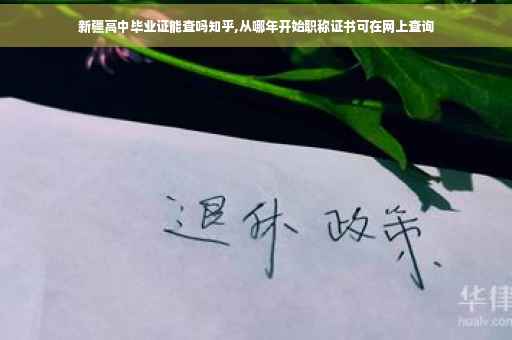 新疆高中毕业证能查吗知乎,从哪年开始职称证书可在网上查询
退休 政策
华律
hualv.com